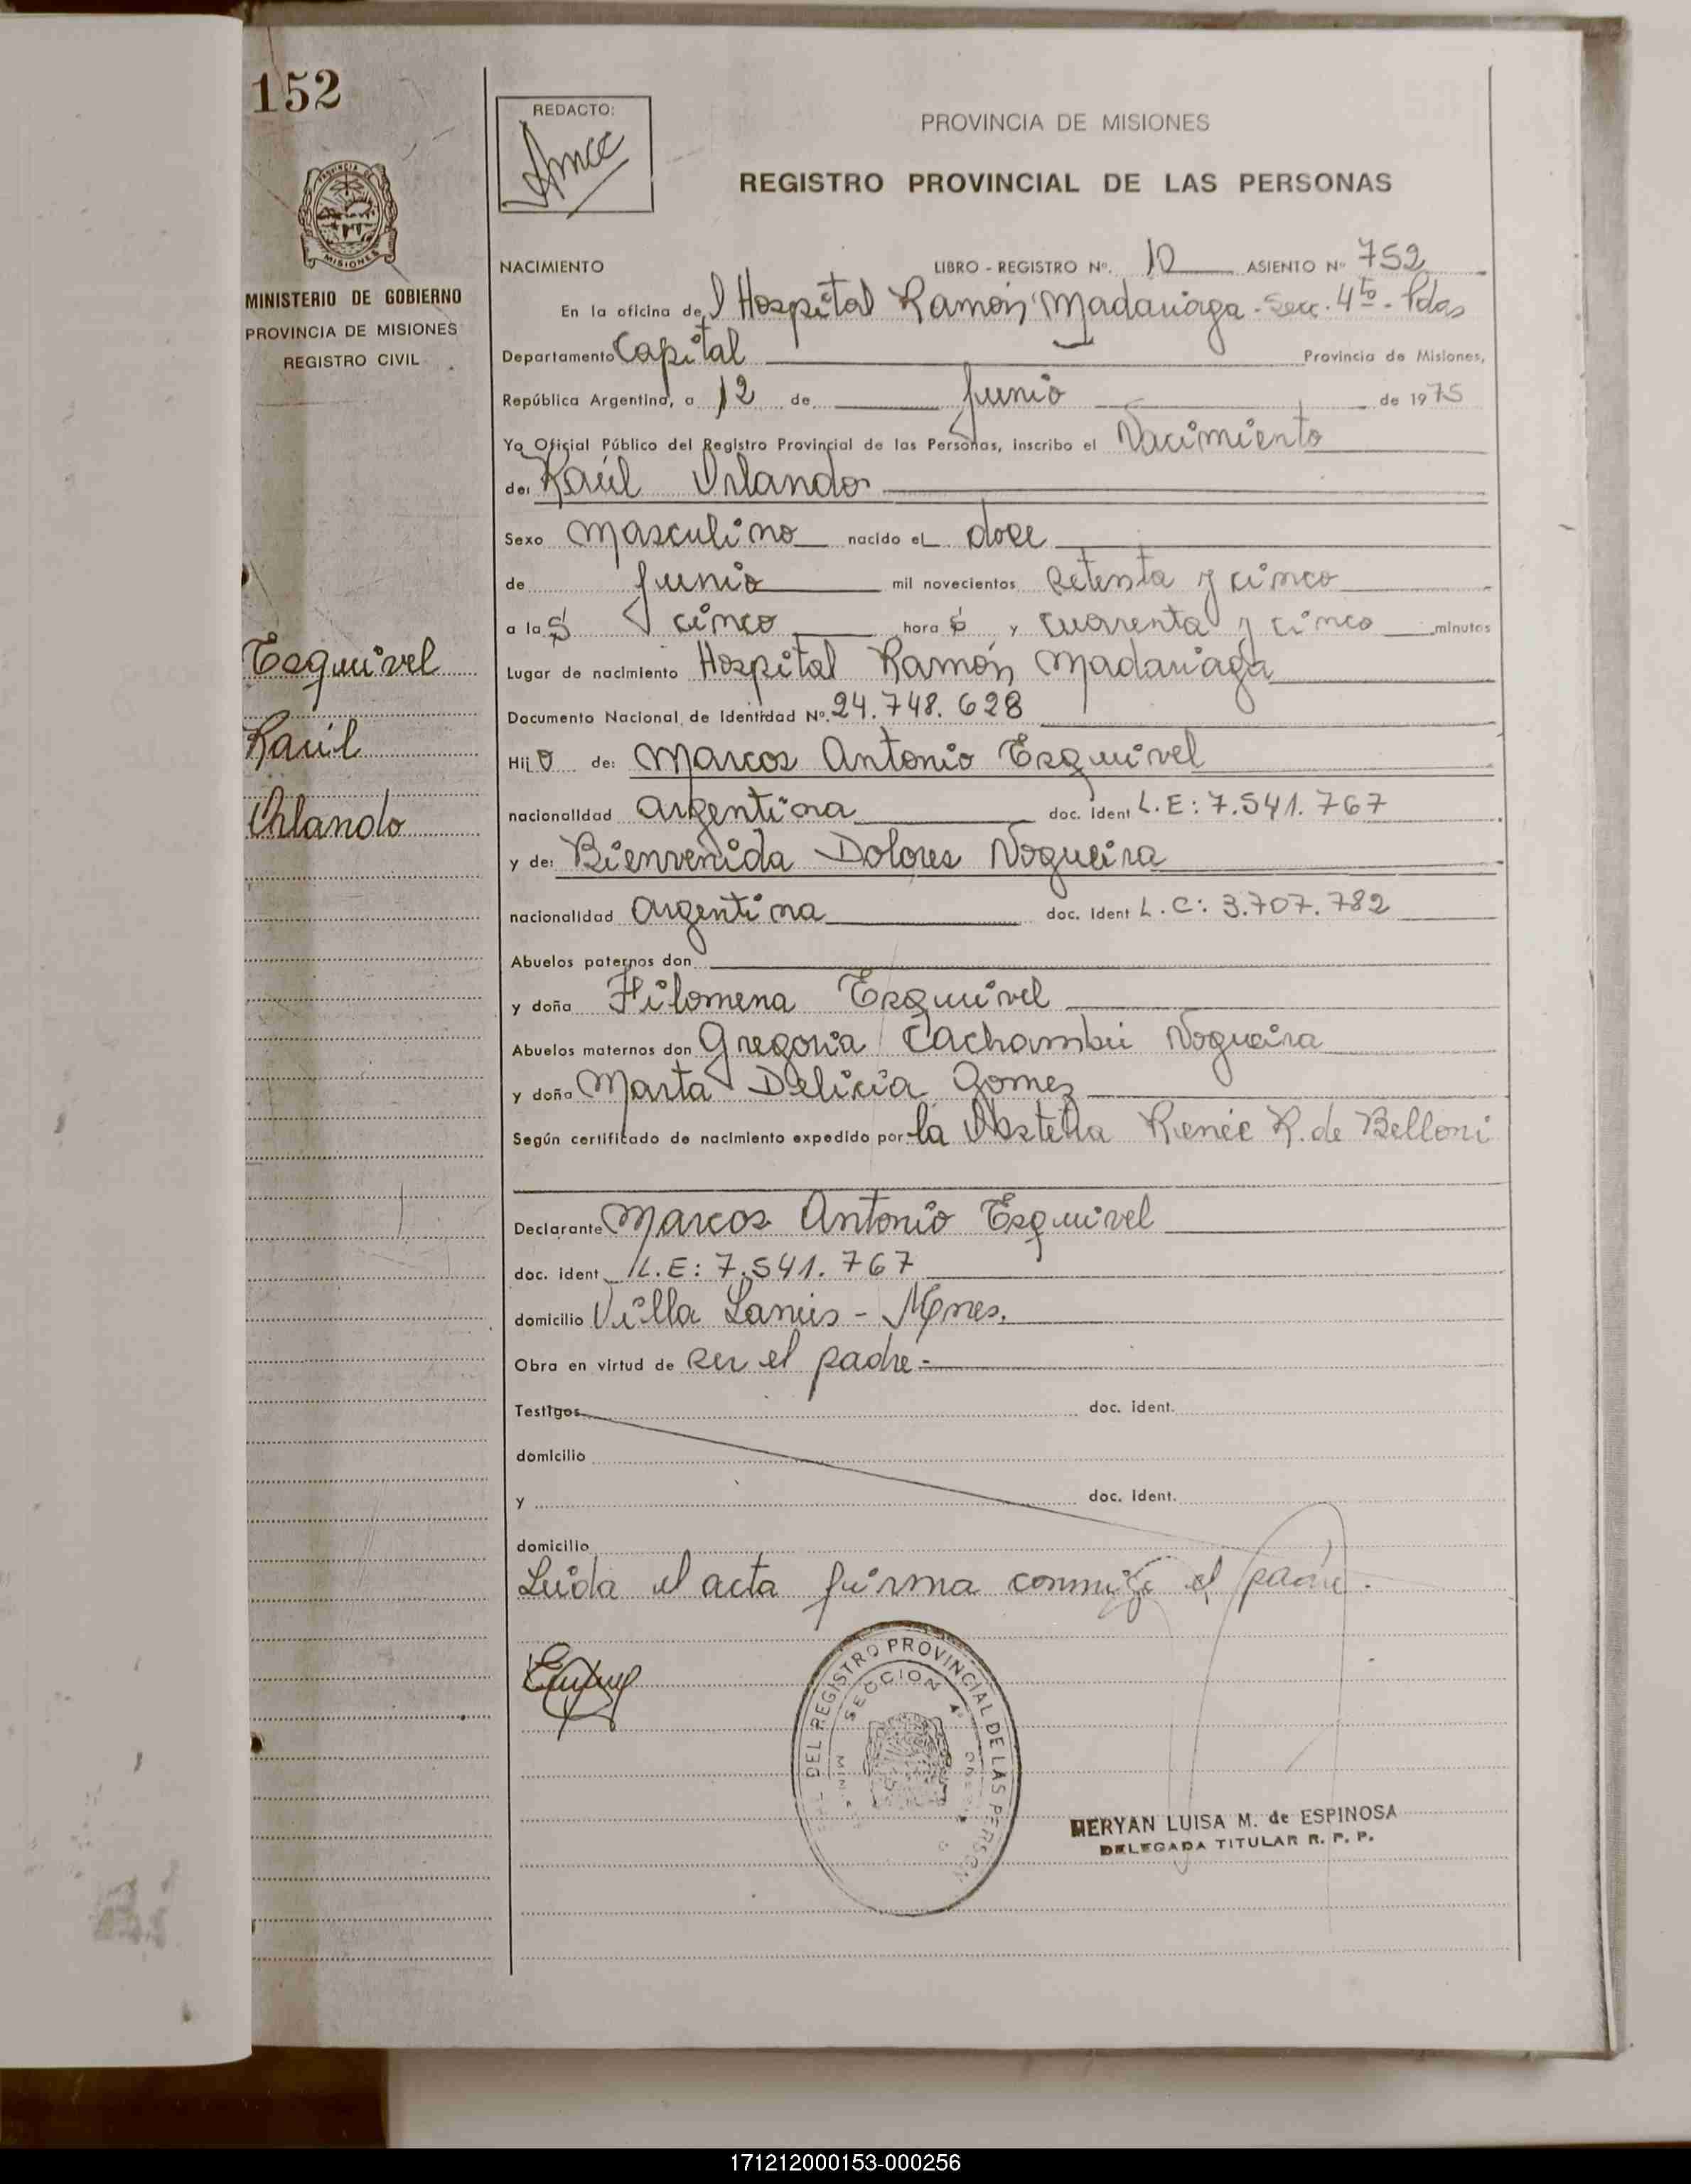 152
REDACTO:
PROVINCIA DE MISIONES
REGISTRO PROVINCIAL DE LAS PERSONAS
MISIONES
MINISTERIO DE GOBIERNO
PROVINCIA DE MISIONES
REGISTRO CIVIL
NACIMIENTO LIBRO - REGISTRO Nº. 10 ASIENTO Nº 752
En la oficina de l Hospital Ramón Madariaga - Secc. 4to - Pdas
Departamento Capital Provincia de Misiones,
República Argentina, a 12 de Junio de 1975
Yo Oficial Público del Registro Provincial de las Personas, inscribo el Nacimiento
de: Raúl Orlando
Sexo Masculino nacido el doce
de Junio mil novecientos setenta y cinco
a las cinco horas y cuarenta y cinco minutos
Lugar de nacimiento Hospital Ramón Madariaga
Documento Nacional de Identidad Nº. 24.748.628
Hijo de: Marcos Antonio Esquivel
nacionalidad argentina doc. ident L.E: 7.541.767
y de: Bienvenida Dolores Nogueira
nacionalidad argentina doc. ident L.C: 3.707.782
Abuelos paternos don
y doña Filomena Esquivel
Abuelos maternos don Gregoria Cachambú Nogueira
y doña Marta Delicia Gomez
Según certificado de nacimiento expedido por la Obstetra Reneé R. de Belloni
Declarante Marcos Antonio Esquivel
doc. ident L.E: 7.541.767
domicilio Villa Lanús - Mnes.
Obra en virtud de ser el padre -
Testigos doc. ident.
domicilio
y doc. ident.
domicilio
Leída el acta firma conmigo el padre.
Esquivel
Raúl
Orlando
DEL REGISTRO PROVINCIAL DE LAS PERSON
SECCION 4ª
MERYAN LUISA M. de ESPINOSA
DELEGADA TITULAR R. P. P.
171212000153-000256